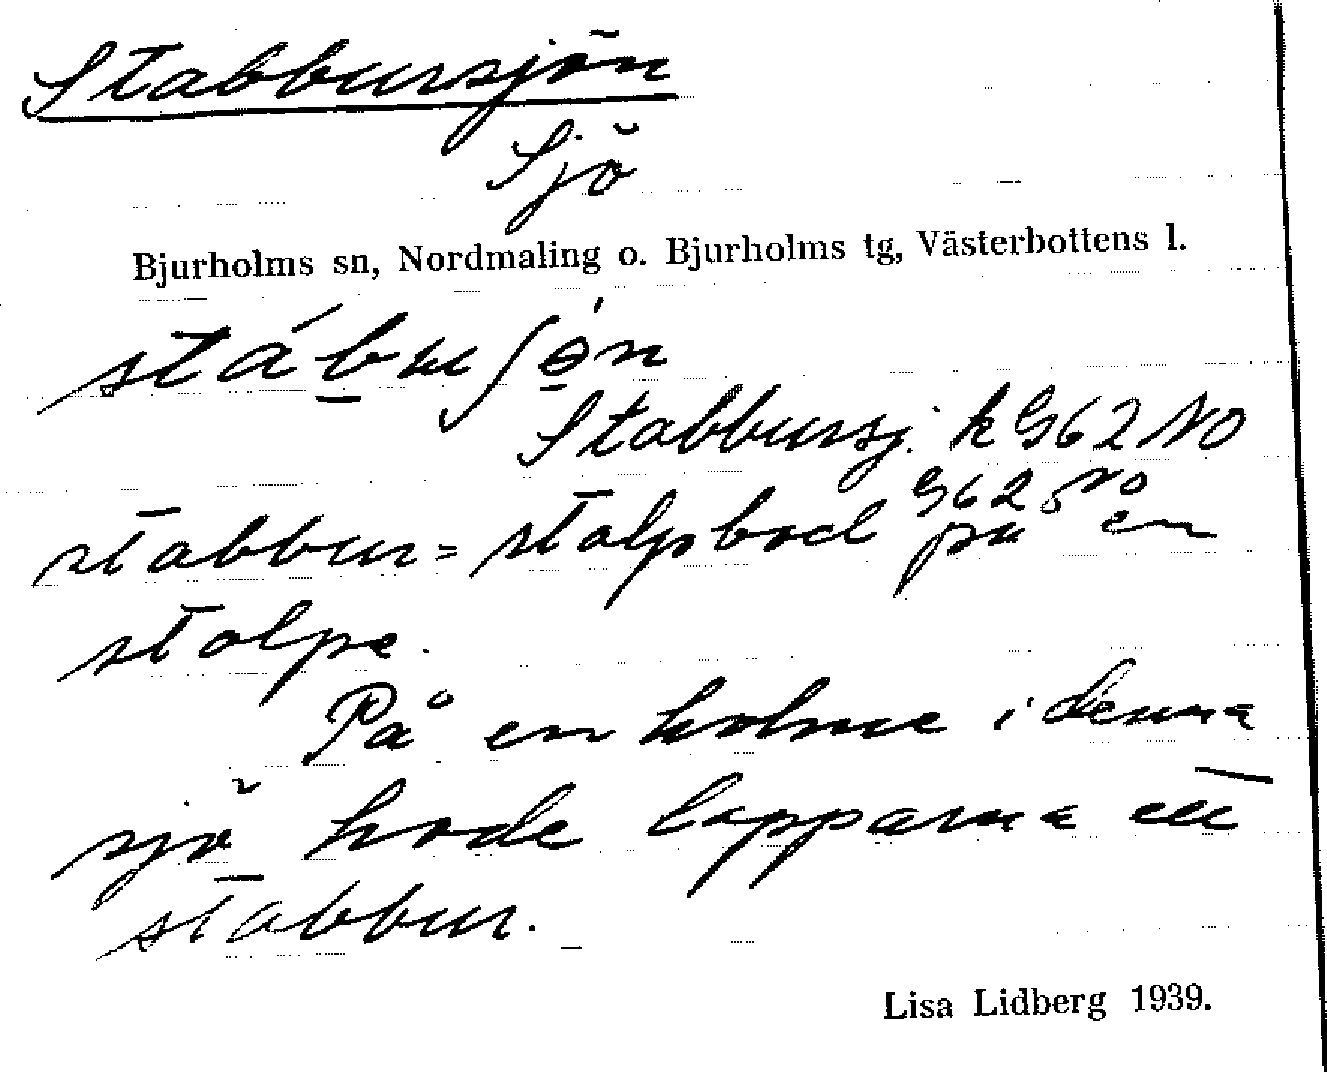 Stabbursjön
Sjö
Bjurholms sn, Nordmaling o. Bjurholms tg, Västerbottens l.
Stabbursj. k G62 NO
G62 NO
stabbur = stolpbod på en
stolpe.
På en holme i denna
sjö hade lapparna ett
stabbur.
Lisa Lidberg 1939.